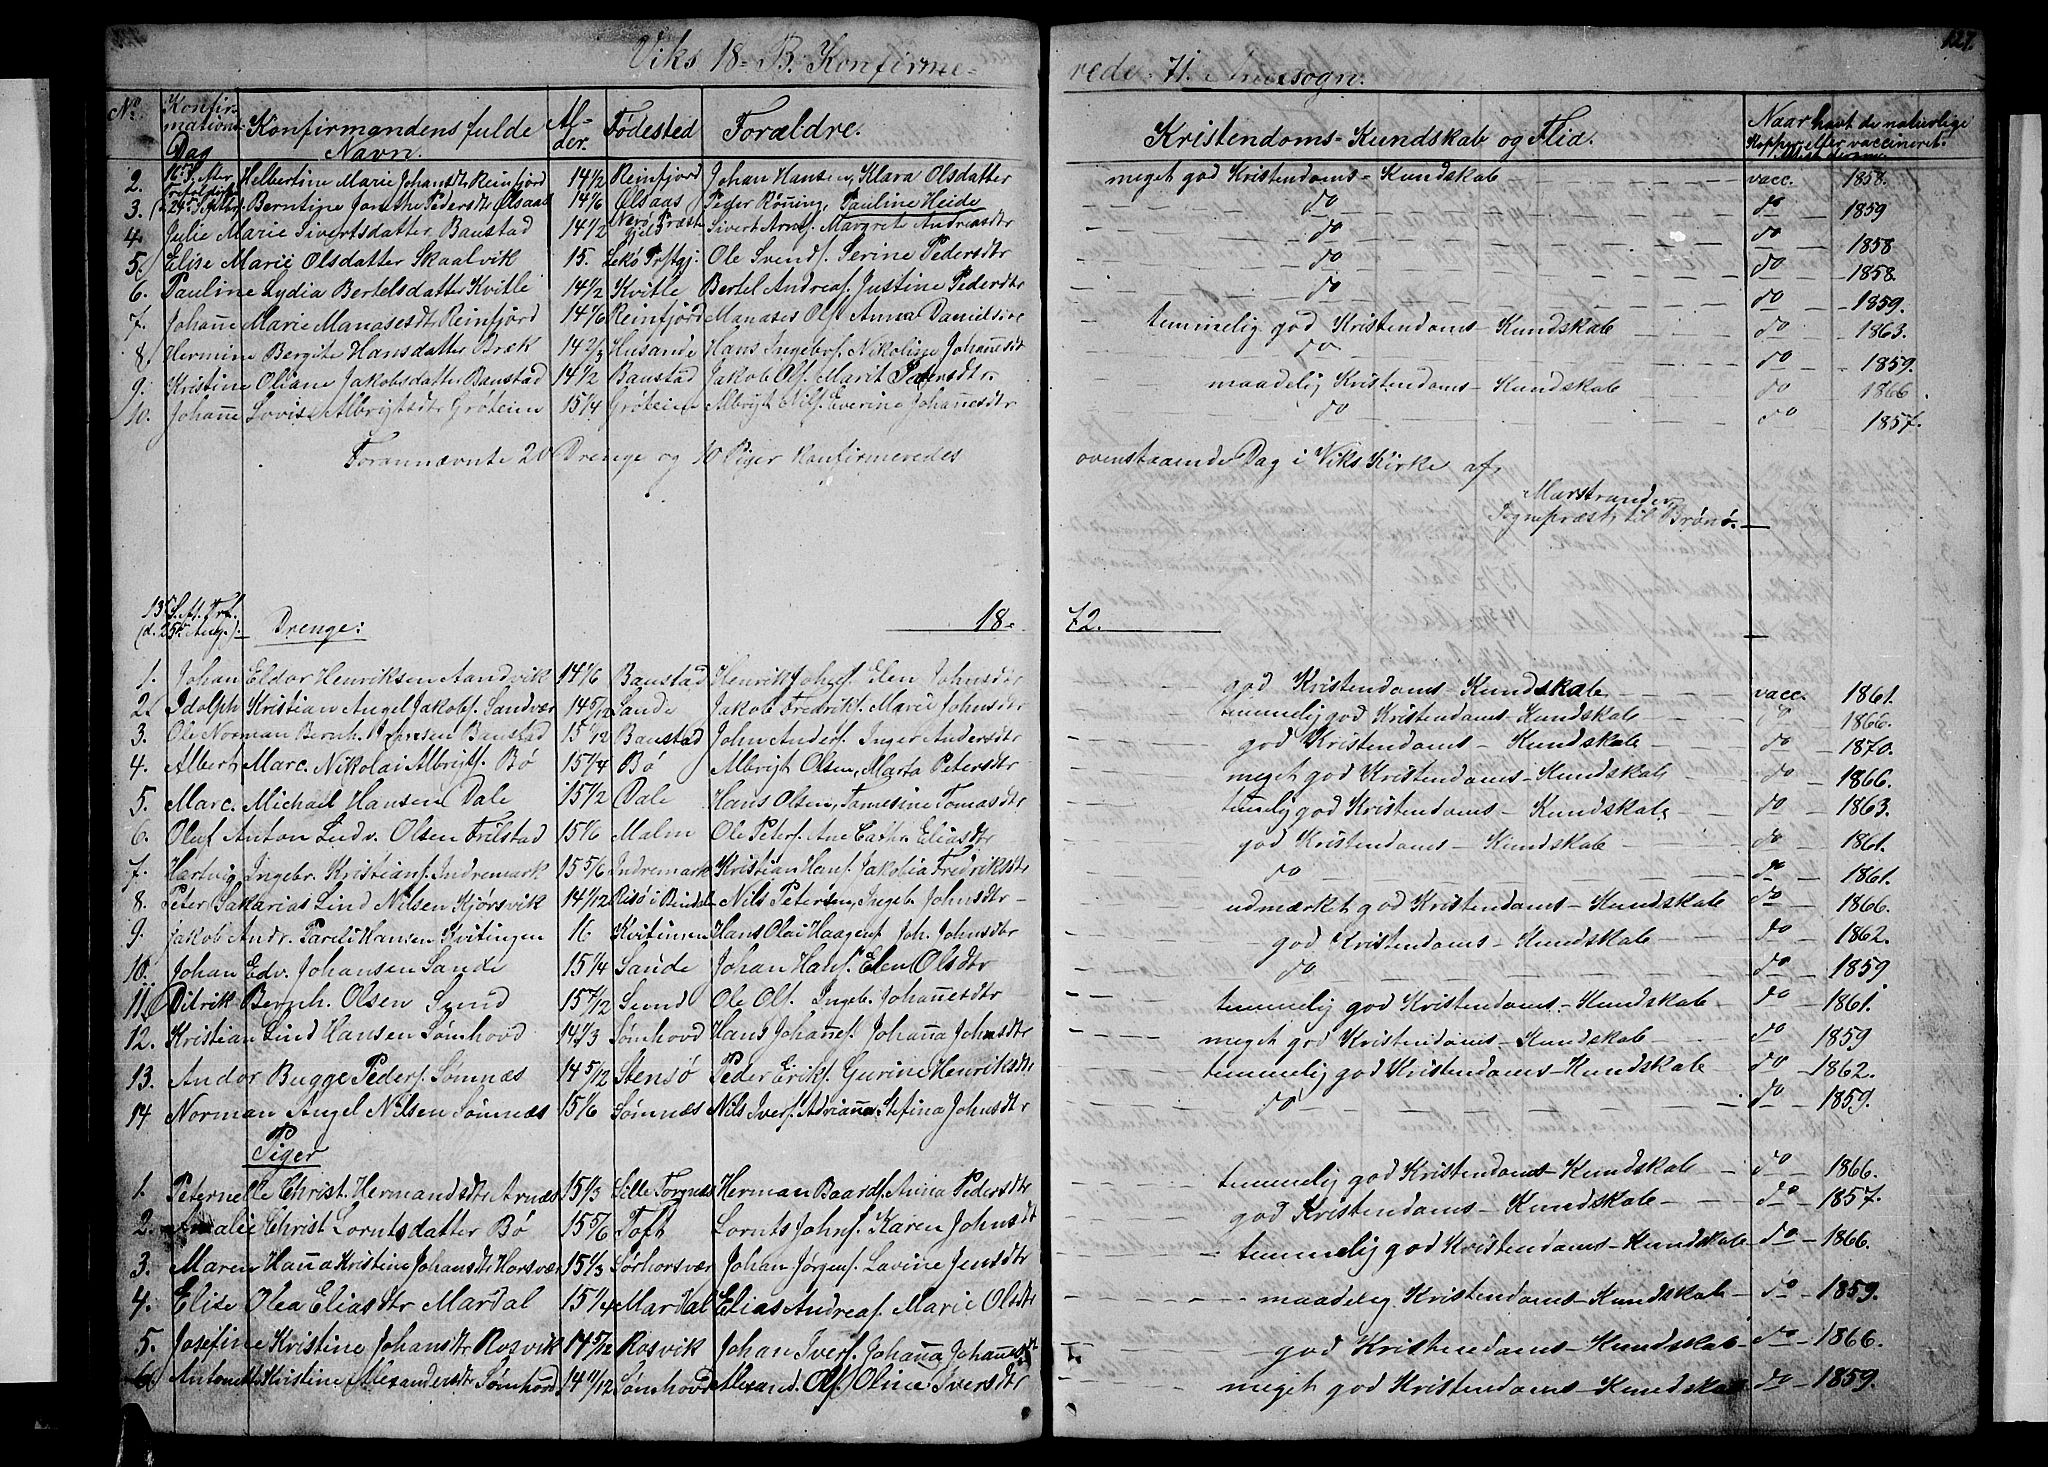 127.
Viks 18- B. Konfirme- rede 71. Anexsogn.
No. Konfirmations Dag Konfirmandens fulde Navn. Alder. Fødested Forældre. Kristendoms-Kundskab og Flid. Naar havt de naturlige Kopper eller vaccineret.
2. Helbertine Marie Johansdtr Reinfjord 14 1/2 Reinfjord Johan Hansen, Klara Olsdatter meget god Kristendoms-Kundskab vacc. 1858.
3. Berntine Jonethe Pedersdtr Olsaas 14 1/6 Olsaas Peder Rønning, Pauline Heide do do 1859
4. Julie Marie Sivertsdatter Baustad 14 1/2 Nerø Præstegjeld Sivert Arntz. Margrete Andreasdtr do do 1858
5. Elise Marie Olsdatter Skaalvik 15. Lekø Prstgj. Ole Svends. Serine Pedersdtr do do 1858.
6. Pauline Lydia Bertelsdatter Kvitle 14 1/2 Kvitle Bertel Andreas. Justine Pedersdtr do do 1859.
7. Johanne Marie Manasesdtr Reinfjord 14 1/6 Reinfjord Manases Ols. Anna Danielsine temmelig god Kristendoms-Kundskab do 1863.
8. Hermine Bergite Hansdatter Bræk 14 2/3 Husande Hans Ingebrs. Nikoline Johannesdt do do 1859.
9. Kristine Oliane Jakobsdatter Baustad 14 1/2 Baustad Jakob Ols. Marit Pedersdtr. maadelig Kristendoms-Kundskab do 1866
10. Johanne Lovise Albrigtsdtr Grøteim 15 1/4 Grøteim Albrigt Nils. Everine Johannesdtr do do 1857.
Forannævnte 20 Drenge og 10 Piger Konfirmeredes ovenstaaende Dag i Viks Kirke af,
Marstrander,
Sognepræst til Brønø.
13d S. Ef. Tref.
(d. 25d Aug.). Drenge: 18- 72.
1. Johan Eldor Henriksen Aandvik 14 1/6 Baustad Henrik Johs. Elen Johnsdtr god Kristendoms-Kundskab vacc. 1861.
2. Idolph Kristian Angel Jakobs. Sandvær 14 5/12 Sande Jakob Fredriks. Marie Johnsdtr temmelig god Kristendoms-Kundskab do 1866.
3. Ole Norman Bernh. Johnsen Baustad 15 1/12 Baustad John Anders. Inger Andersdtr god Kristendoms-Kundskab do 1870.
4. Albert Marc. Nikolai Albrigts. Bø 15 1/4 Bø Albrigt Olsen, Marta Petersdtr meget god Kristendoms-Kundskab do 1866.
5. Marc. Michael Hansen Dale 15 1/2 Dale Hans Olsen, Tamesine Tomasdtr temmelig god Kristendoms-Kundskab do 1863.
6. Oluf Anton Ludv. Olsen Frilstad 15 1/6 Malm Ole Peters. Ane Cathr. Eliasdtr god Kristendoms-Kundskab do 1861.
7. Hartvig Ingebr. Kristians. Indremark 15 5/6 Indremark Kristian Hans. Jakobia Fredriksdtr do do 1861.
8. Peter Sakarias Lind Nilsen Kjørsvik 14 1/12 Risø i Bindal Nils Petersen, Ingeb. Johnsdtr udmærket god Kristendoms-Kundskab do 1866.
9. Jakob Andr. Pareli Hansen Kvitingen 16 Kvitinen Hans Olai Haagens. Joh. Johnsdtr god Kristendoms-Kundskab do 1862.
10. Johan Edv. Johansen Sande 15 1/4 Sande Johan Hans. Elen Olsdtr do do 1859
11. Ditrik Bernh. Olsen Sund 15 7/12 Sund Ole Ols. Ingeb. Johannesdtr temmelig god Kristendoms-Kundskab do 1861.
12. Kristian Lind Hansen Sømhovd 14 1/3 Sømhovd Hans Johannes. Johanna Johnsdtr meget god Kristendoms-Kundskab do 1859
13. Andor Bugge Peders. Sømnæs 14 5/12 Stensø Peder Eriks. Gurine Henriksdtr temmelig god Kristendoms-Kundskab do 1862.
14 Norman Angel Nilsen Sømnæs 15 1/6 Sømnæs Nils Ivers. Adrianna Stefina Johnsdtr do do 1859.
Piger
1. Peternelle Christ. Hermandsdtr Arnæs 15 1/3 Lille Torgnæs Herman Baards. Anna Pedersdtr temmelig god Kristendoms-Kundskab do 1866.
2. Amalie Christ Lorntsdatter Bø 15 5/6 Toft Lornts Johns. Karen Johnsdt god Kristendoms-Kundskab do 1857.
3. Maren Hanna Kristine Johansdtr Horsvær 15 1/3 Sørhorsvær Johan Jørgens. Lavine Jensdtr temmelig god Kristendoms-Kundskab do 1866.
4. Elise Olea Eliasdtr Mardal 15 1/4 Mardal Elias Andreas. Marie Olsdtr maadelig Kristendoms-Kundskab do 1859.
5. Josefine Kristine Johansdtr Rosvik 14 5/12 Rosvik Johan Ivers. Johanna Johannesdt god Kristendoms-Kundskab do 1866.
6. Antonette Kristine Alexandersdtr Sømhovd 14 11/12 Sømhovd Alexand. Ols. Oline Iversdtr meget god Kristendoms-Kundskab do 1859.